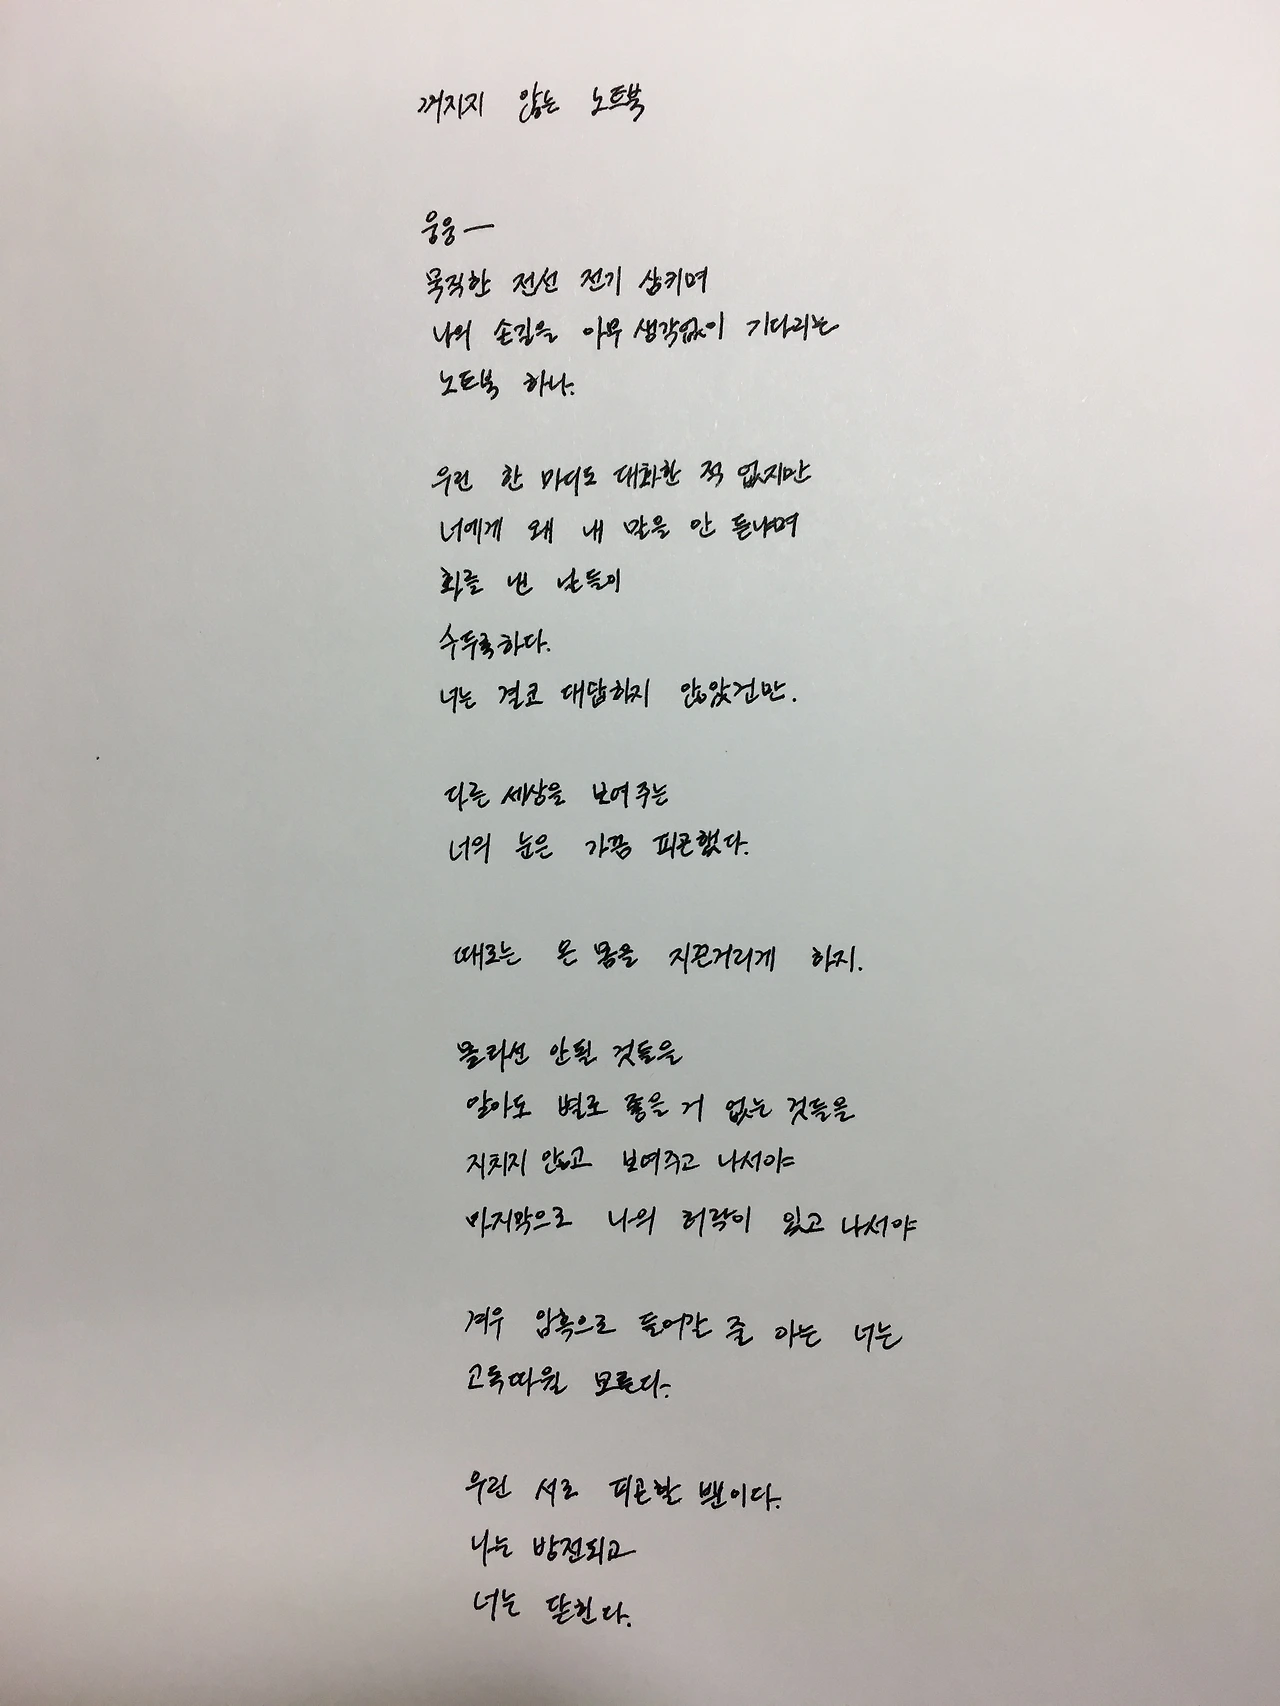 꺼지지 않는 노트북
웅웅—
묵직한 전선 전기 삼키며
나의 손길을 아무 생각없이 기다리는
노트북 하나.
우린 한 마디도 대화한 적 없지만
너에게 왜 내 말을 안 듣냐며
화를 낸 날들이
수두룩하다.
너는 결코 대답하지 않았건만.
다른 세상을 보여주는
너의 눈은 가끔 피곤했다.
때로는 온 몸을 지끈거리게 하지.
몰라선 안될 것들을
알아도 별로 좋을 거 없는 것들을
지치지 않고 보여주고 나서야
마지막으로 나의 허락이 있고 나서야
겨우 암흑으로 들어갈 줄 아는 너는
고독따윌 모른다.
우린 서로 피곤할 뿐이다.
나는 방전되고
너는 닫힌다.